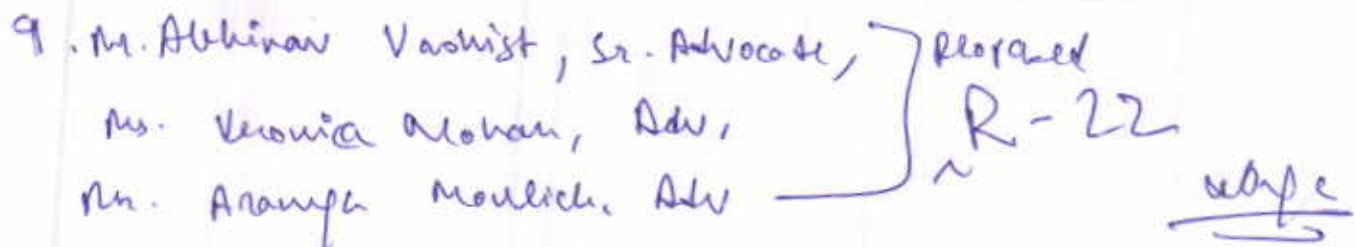 9. Mr. Abhinav Vashist, Sr. Advocate,
Ms. Veronica Mohan, Adv,
Mr. Moulick, Adv
R-22